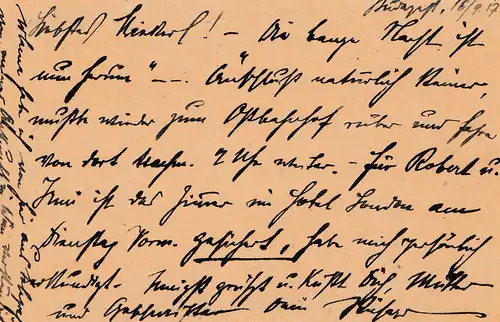 Budapest, 16/9.17
Liebstes Kinderl! – „Die bange Nacht ist
nun herum“ – – Anschluß natürlich keiner,
mußte wieder zum Ostbahnhof rüber und fahre
von dort Nachm. 2 Uhr weiter. – Für Robert u.
Irmi ist das Zimmer im Hotel London am
Dienstag Vorm. gesichert, habe mich persönlich
erkundigt. Innigst grüßt u. küßt Dich, Mutter
und Geschwister Dein